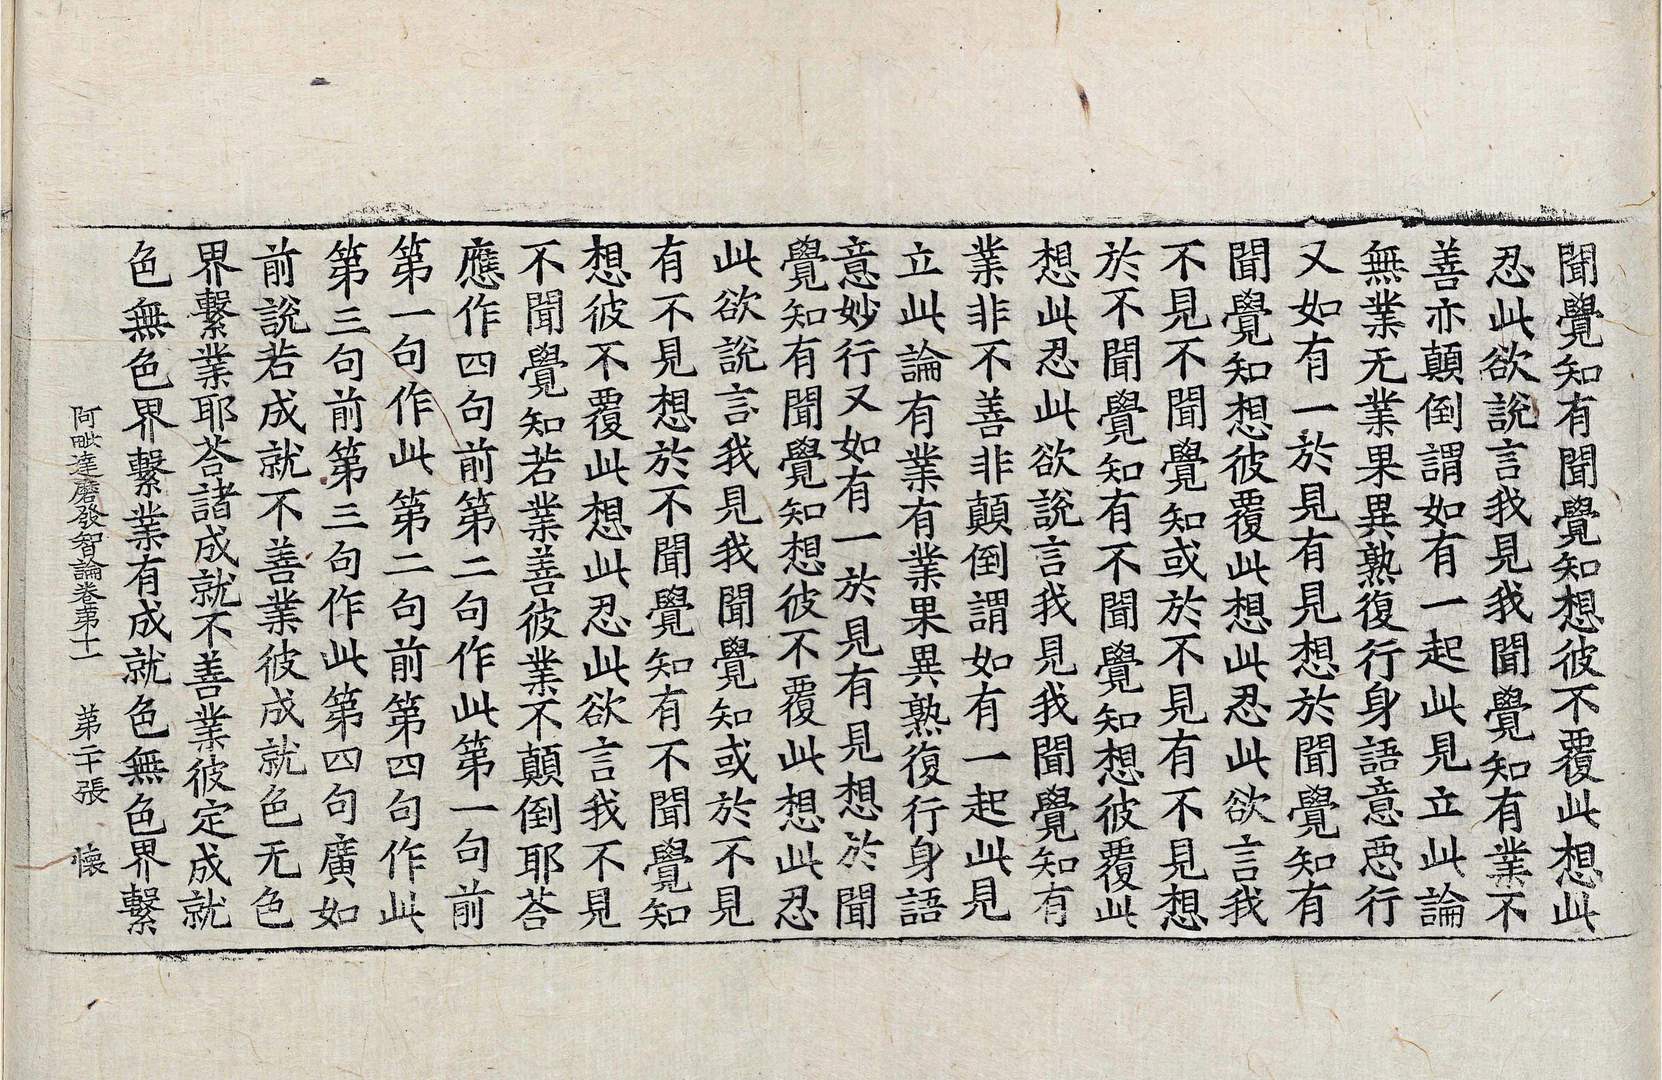 聞覺知有聞覺知想彼不覆此想此
忍此欲說言我見我聞覺知有業不
善亦顛倒謂如有一起此見立此論
無業无業果異熟復行身語意惡行
又如有一於見有見想於聞覺知有
聞覺知想彼覆此想此忍此欲言我
不見不聞覺知或於不見有不見想
於不聞覺知有不聞覺知想彼覆此
想此忍此欲說言我見我聞覺知有
業非不善非顛倒謂如有一起此見
立此論有業有業果異熟復行身語
意妙行又如有一於見有見想於聞
覺知有聞覺知想彼不覆此想此忍
此欲說言我見我聞覺知或於不見
有不見想於不聞覺知有不聞覺知
想彼不覆此想此忍此欲言我不見
不聞覺知若業善彼業不顛倒耶荅
應作四句前第二句作此第一句前
第一句作此第二句前第四句作此
第三句前第三句作此第四句廣如
前說若成就不善業彼成就色无色
界繫業耶荅諸成就不善業彼定成就
色無色界繫業有成就色無色界繫
阿毗達磨發智論卷苐十一 苐二十張 懷